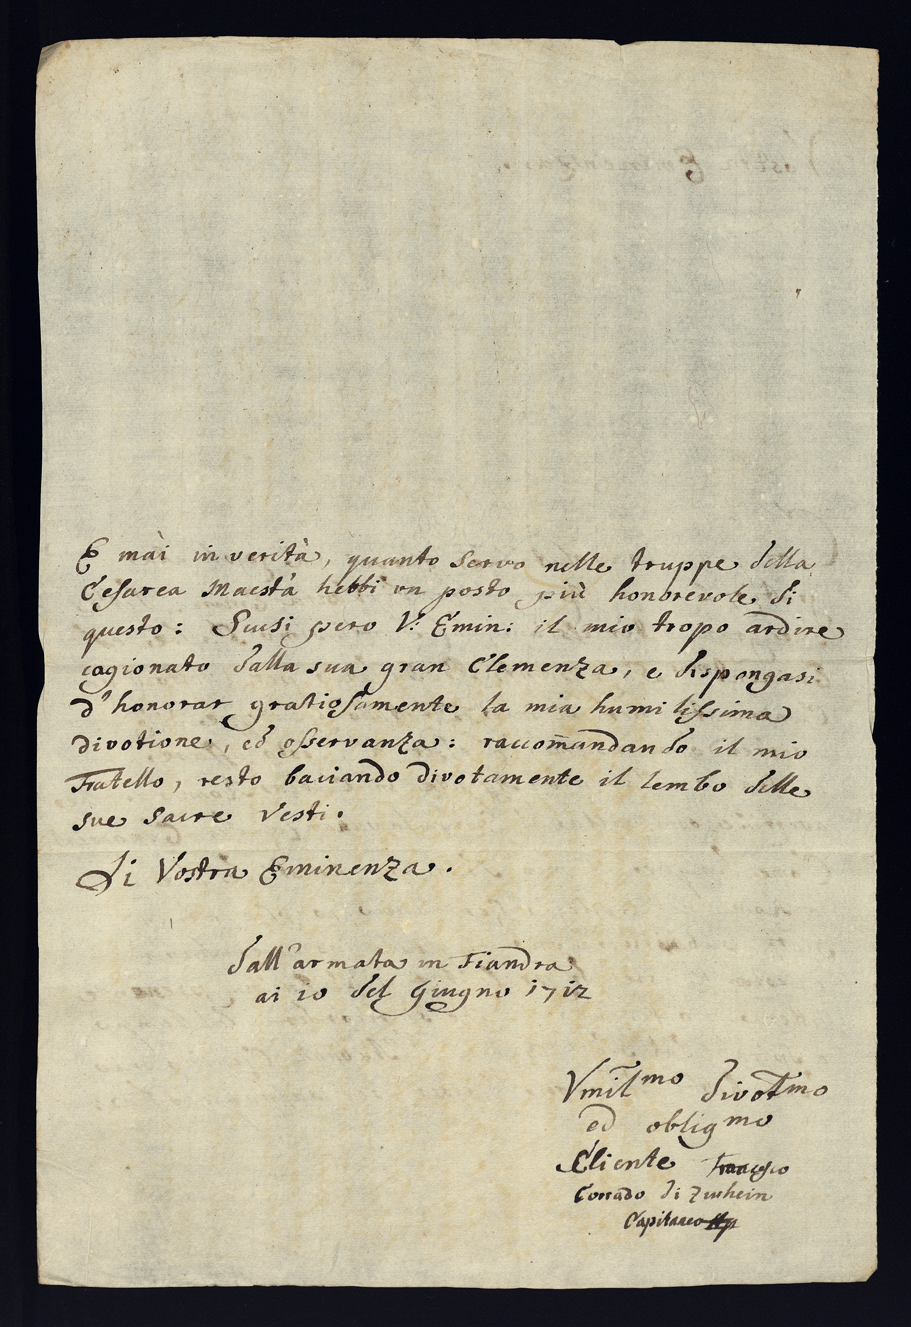 E mài in verità, quanto servo nelle truppe della
Cesarea Maestà hebbi un posto più honorevole di
questo: Scusi pero V. Emin: il mio tropo ardire
cagionato dalla sua gran Clemenza, e dispongasi
d'honorar gratiosamente la mia humilissima
divotione, ed osservanza: raccom̄andando il mio
Fratello, resto baciando divotamente il lembo delle
sue sacre Vesti.
Di Vostra Eminenza.
dall'armata in Fiandra
ai 10 del Giugno 1712
Vmilmo divotmo
ed obligmo
Cliente Francesco
Corrado di Zurhein
Capitaneo